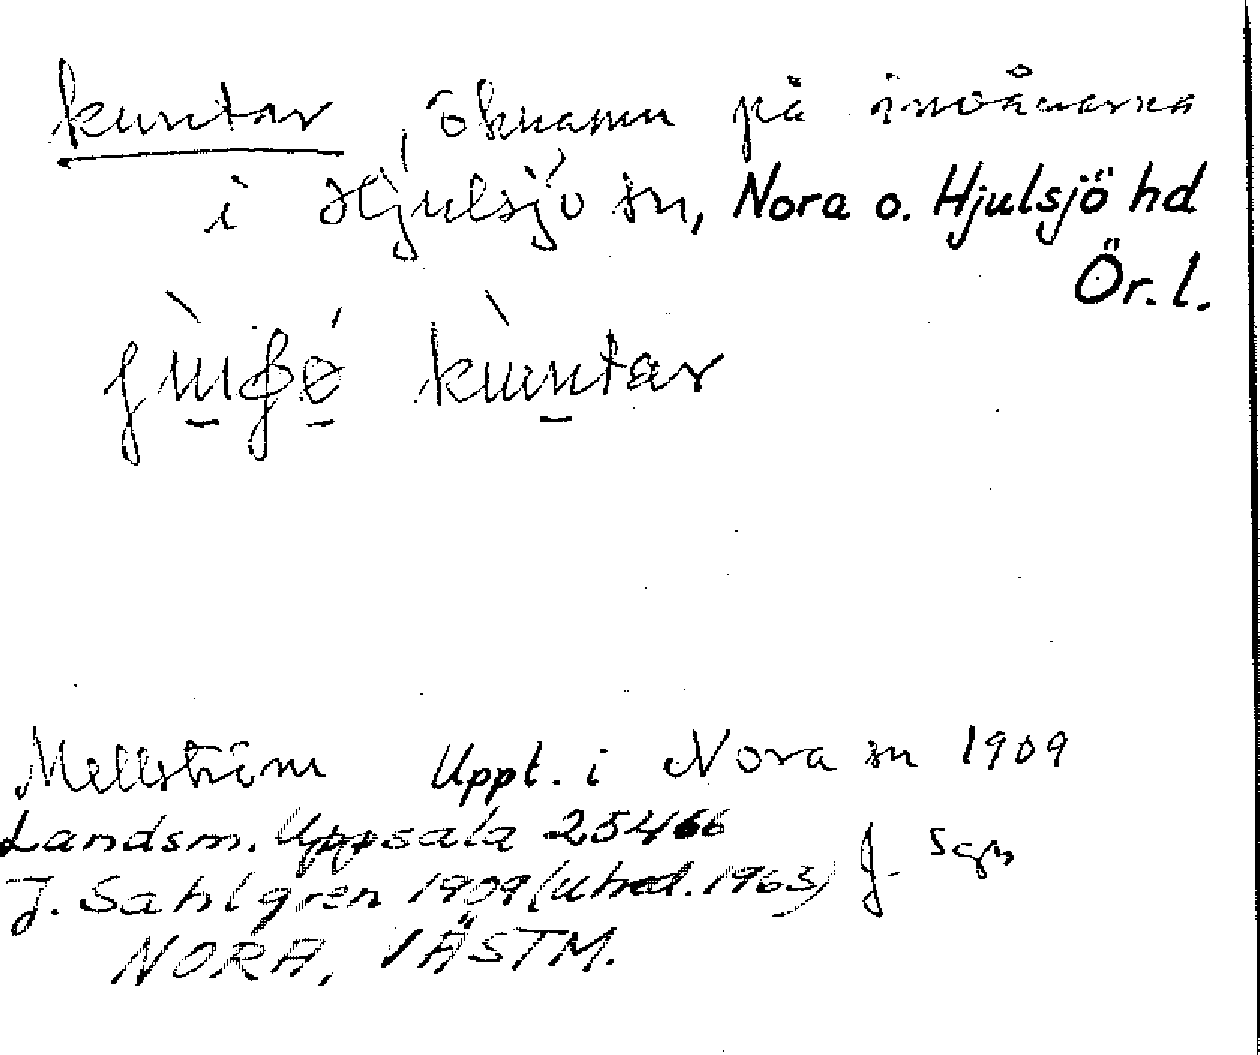 kuntar, öknamn på invånarna
i Hjulsjö sn, Nora o. Hjulsjö hd
Ör. l.
kuntar
Mellström Uppt. i Nora sn 1909
Landsm. Uppsala 25466
J. Sahlgren 1909 (uhed. 1963) J. Sgn
NORA, VÄSTM.